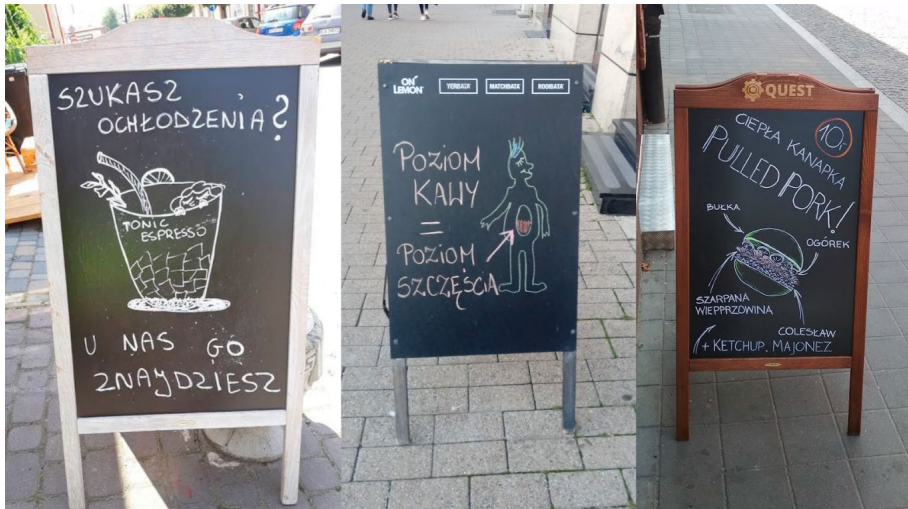 SZUKASZ
OCHŁODZENIA?
TONIC
ESPRESSO
U NAS GO
ZNAJDZIESZ
ON LEMON
YERBATA MATCHBATA ROOIBATA
POZIOM
KAWY
=
POZIOM
SZCZĘŚCIA
QUEST
CIEPŁA KANAPKA
10,-
PULLED PORK!
BUŁKA
OGÓREK
SZARPANA
WIEPPRZOWINA
COLESŁAW
+ KETCHUP, MAJONEZ